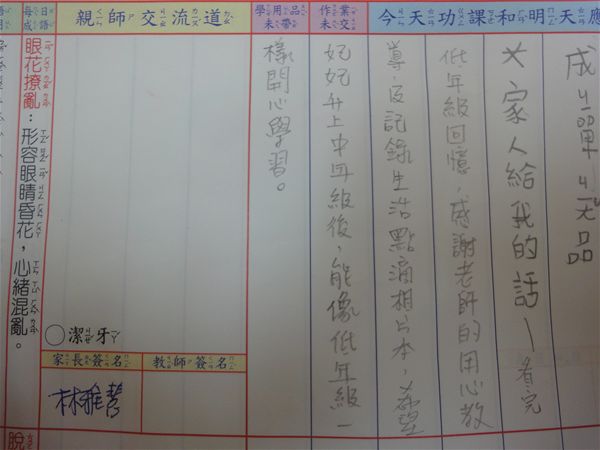 今天功課和明天應
家人給我的話－看完
低年級回憶，感謝老師的用心教
導，及記錄生活點滴相片本，希望
妃妃升上中年級後，能像低年級一
樣開心學習。
作業未交
學用品未帶
親師交流道
潔牙
家長簽名
林雅慧
教師簽名
每日成語
眼花撩亂：形容眼睛昏花，心緒混亂。
脫